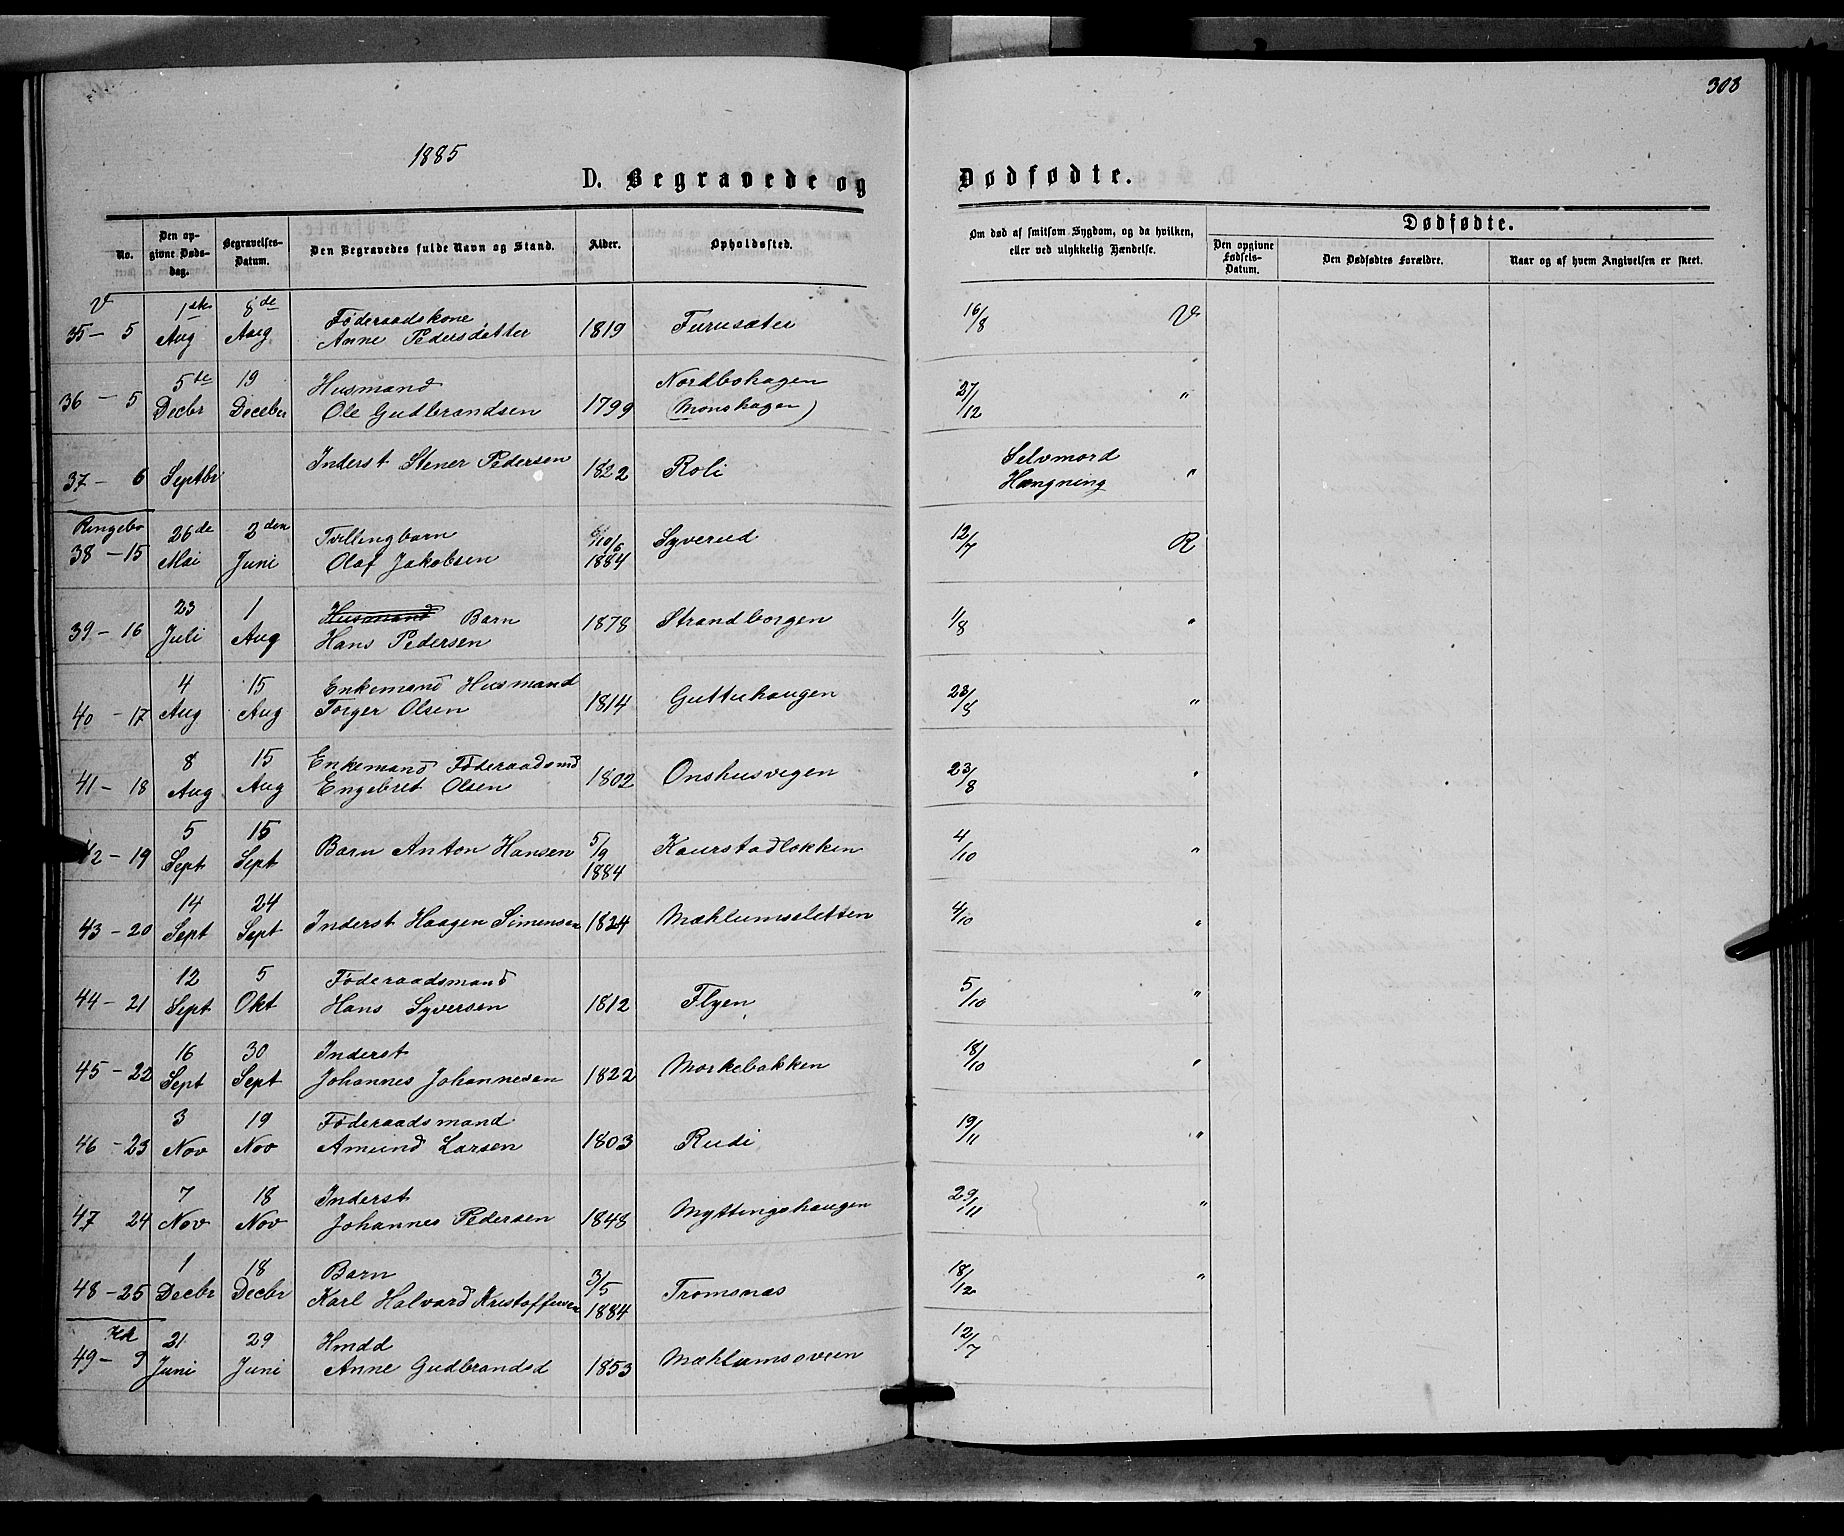 308
1885
D. Begravede og Dødfødte.
No.
Den opgivne Dødsdag.
Begravelses-Datum.
Den Begravedes fulde Navn og Stand.
Alder.
Opholdssted.
Om død af smitsom Sygdom, og da hvilken, eller ved ulykkelig Hændelse.
Dødfødte.
Den opgivne Fødsels-Datum.
Den Dødfødtes Forældre.
Naar og af hvem Angivelsen er skeet.
V
35 - 5 1ste Aug 8de Aug Føderaadskone Anne Pedersdatter 1819 Furusæter 16/8 V
36 - 5 5te Decbr 19 Deceber Husmand Ole Gudbrandsen 1799 Nordbohagen (Monshagen) 27/12 "
37 - 6 Septbr Inderst Stener Pedersen 1822 Roli Selvmord Hængning "
Ringebo
38 - 15 26de Mai 2den Juni Tvillingbarn Olaf Jakobsen 10/6 1884 Syverud 12/7 R
39 - 16 23 Juli 1 Aug Husmand Barn Hans Pedersen 1878 Strandborgen 1/8 "
40 - 17 4 Aug 15 Aug Enkemand Husmand Torger Olsen 1814 Guttuhaugen 23/8 "
41 - 18 8 Aug 15 Aug Enkemand Føderaadsmd Engebret Olsen 1802 Onshusvegen 23/8 "
42 - 19 5 Sept 15 Sept Barn Anton Hansen 5/9 1884 Kaurstadløkken 4/10 "
43 - 20 14 Sept 24 Sept Inderst Haagen Simensen 1824 Mæhlumssletten 4/10 "
44 - 21 12 Sept 5 Okt Føderaadsmand Hans Syversen 1812 Flyen 5/10 "
45 - 22 16 Sept 30 Sept Inderst Johannes Johannesen 1822 Mørkebakken 18/10 "
46 - 23 3 Nov 19 Nov Føderaadsmand Amund Larsen 1803 Rudi 19/11 "
47 24 7 Nov 18 Nov Inderst Johannes Pedersen 1848 Myttingshaugen 29/11 "
48 - 25 1 Decbr 18 Decbr Barn Karl Halvard Kristoffersen 3/5 1884 Tromsnæs 18/12 "
49 - 9 21 Juni 29 Juni Hmdd Anne Gudbrandsd 1853 Mæhlumsøveen 12/7